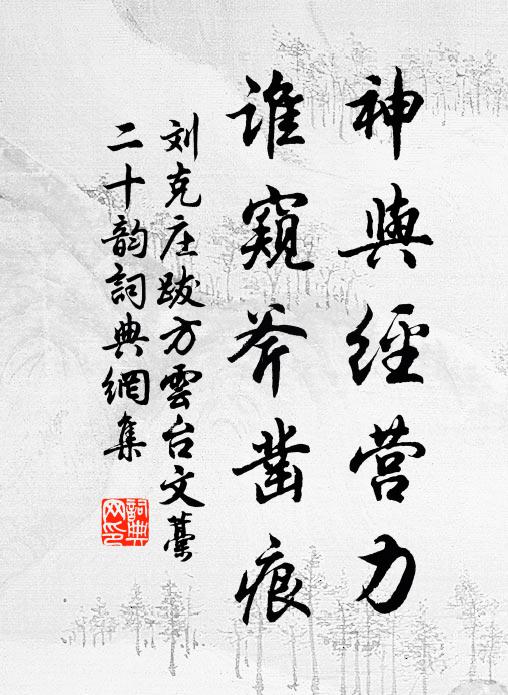 神與經营力
谁窺斧凿痕
刘克庄跋方雲台文藁
二十韵詞典網集
詞典网印